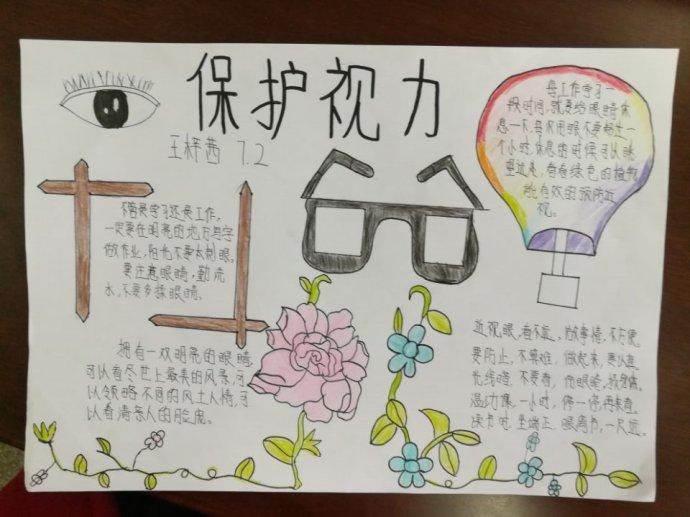 保护视力
王梓茜 7.2
每工作学习一
段时间,就要给眼睛休
息一下,每次用眼不要超过一
个小时,休息的时候可以眺
望远处,看看绿色的植物
能有效的预防近
视。
不管是学习还是工作,
一定要在明亮的地方写字
做作业,阳光不要太刺眼。
要注意眼睛,勤洗
水,不要多揉眼睛。
拥有一双明亮的眼睛,
可以看尽世上最美的风景,可
以领略不同的风土人情,可
以看清亲人的脸庞。
近视眼,看不远,做事情,不方便,
要防止,不算难,做起来,要认真
光线暗,不要看,伤眼睛,
一小时,停一停,再来看,
读书时,坐端正,眼离书,一尺远。